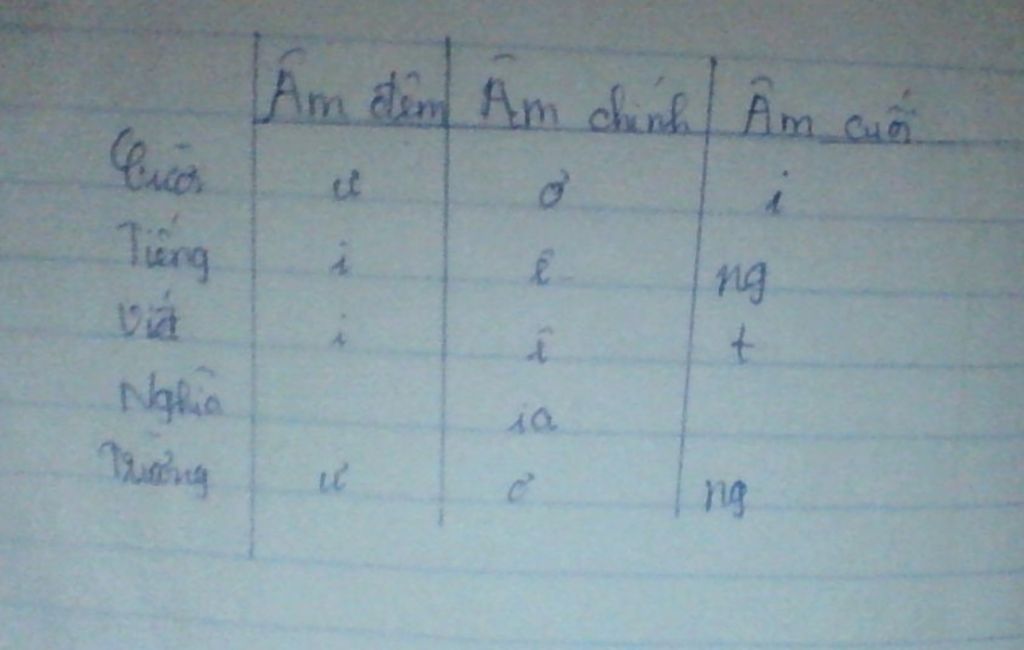 Âm đệm Âm chính Âm cuối
ư ơ i
Tiếng i ê ng
Việt i ê t
Nghĩa ia
Trường ư ơ ng